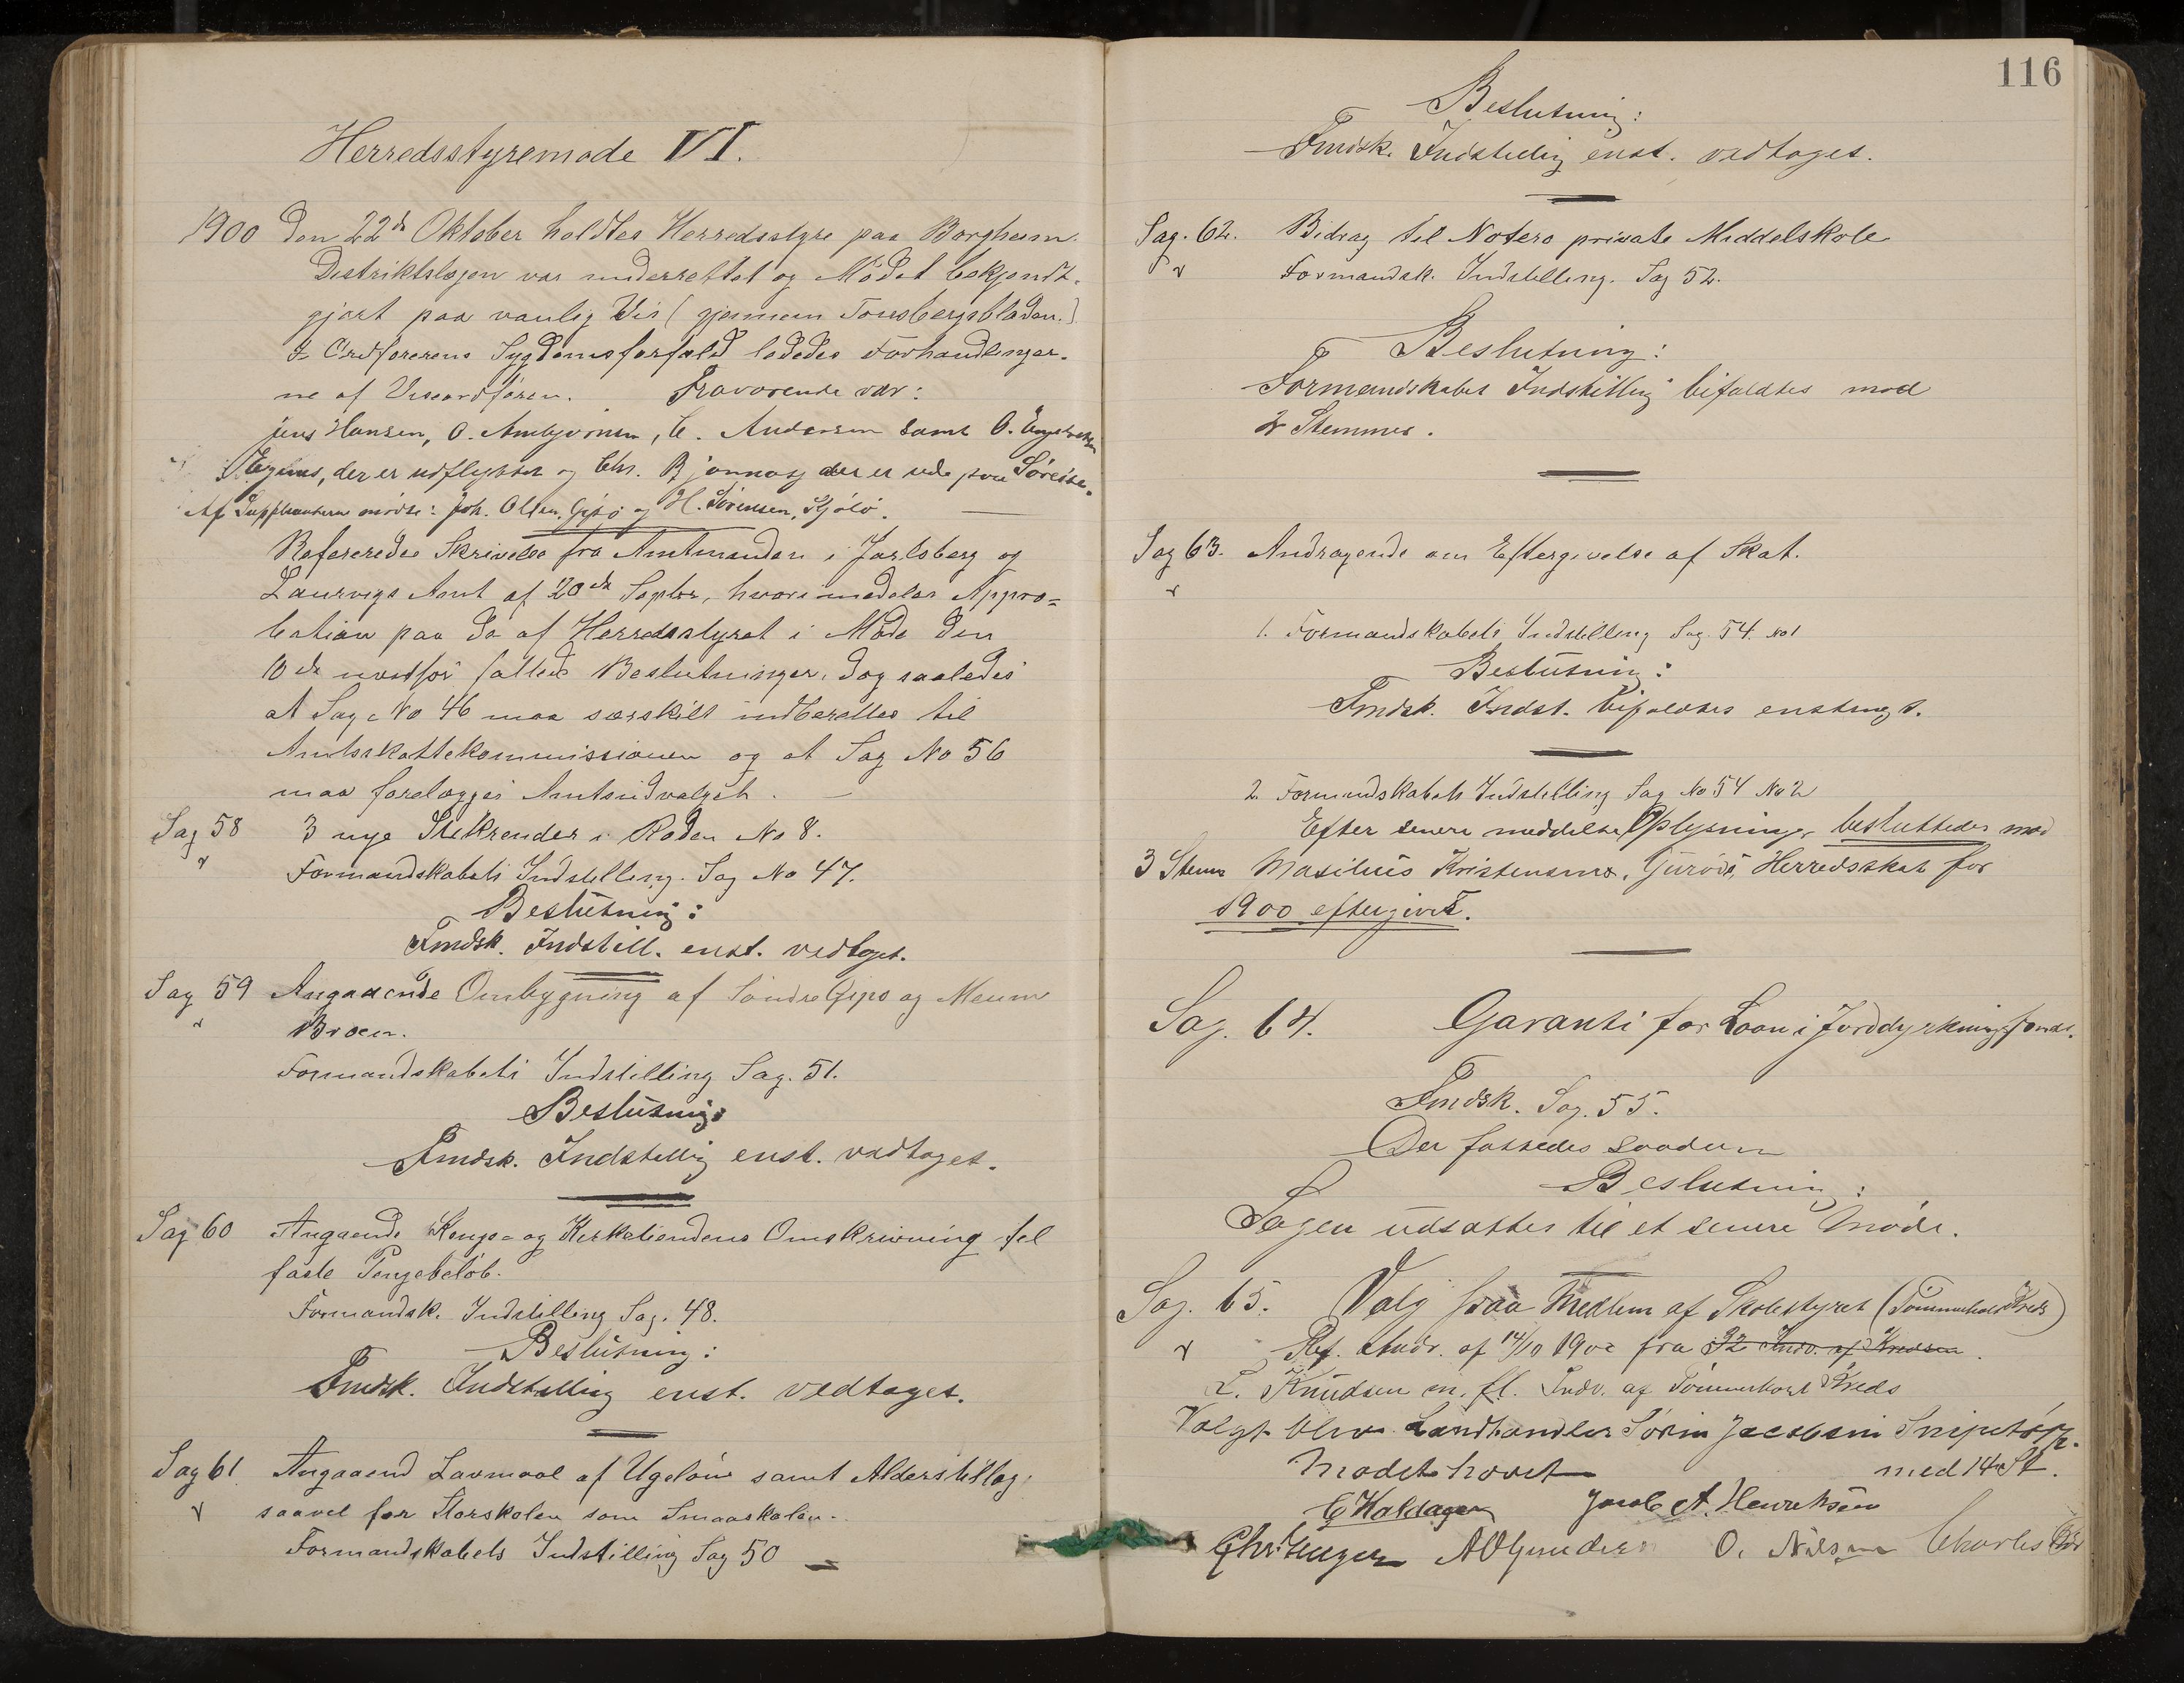 Herredsstyremøde VI.
1900 Den 22de Oktober holdtes Herredsstyre paa Borgheim.
Distriktslægen var underrettet og Mødet bekjendt-
gjort paa vanlig Vis (gjennem Tønsbergsbladene.)
I Ordførerens Sygdomsforfald lededes Forhandlinger-
ne af Viseordføren. Fraværende var:
Jens Hansen, O. Ambjørnsen, C. Andersen samt O. Engebretsen
der er udflyttet og Chr. Bjønnes der er ude paa Søreise.
Af Suppleanterne mødte: Joh. Olsen, Gipø og H. Sørensen, Kjølø.
Refereredes Skrivelse fra Amtmanden i Jarlsberg og
Laurvigs Amt af 20de Septbr., hvori meddeles Appro=
bation paa de af Herredsstyret i Møde den
10de næstfør fattede Beslutninger, dog saaledes
at Sag No 46 maa særskilt indberettes til
Amtsskattekommissionen og at Sag No 56
maa forelægges Amtsudvalget.
Sag 58 3 nye Stikrender i Roden No 8.
Formandskabets Indstilling. Sag No 47.
Beslutning:
Fmdsk. Indstill. enst. vedtaget.
Sag 59 Angaaende Ombygning af Søndre Gipø og Meum
Broen.
Formandskabets Indstilling Sag. 51.
Beslutning:
Fmdsk. Indstilling enst. vedtaget.
Sag 60 Angaende Konge- og Kirketiendens Omskrivning til
faste Pengebeløb.
Formandsk. Indstilling Sag. 48.
Beslutning:
Fmdsk. Indstilling enst. vedtaget.
Sag 61 Angaaend Lavmaal af Ugeløn samt Alderstillæg,
saavel for Storskolen som Smaaskolen.
Formandskabets Indstilling Sag 50
116
Beslutning:
Fmdsk. Indstilling enst. vedtaget.
Sag. 62. Bidrag til Nøterø private Middelskole
Formandsk. Indstilling. Sag 52.
Beslutning:
Formandskabets Indstilling bifaldtes mod
2 Stemmer.
Sag 63. Andragende om Eftergivelse af Skat.
1. Formandskabets Indstilling Sag. 54. No 1
Beslutning:
Fmdsk. Indst. bifaldtes enstemgt.
2. Formandskabets Indstilling Sag No 54 No 2
Efter senere meddelte Oplysninger besluttedes mod
3 Stemr Maxilius Kristensens, Herredsskat for
1900 eftergivet.
Sag. 64. Garanti for Laan i Jorddyrkningsfondt.
Fmdsk. Sag. 55.
Der fattedes saadan
Beslutning:
Sagen udsættes til et senere Møde.
Sag. 65. Valg paa Medlem af Skolestyret (Tømmerholt Kreds)
Ref. Andr. af 14/10 1900 fra 32 Indv. af Knudsen.
L. Knudsen m. fl. Indv. af Tømmerholt Kreds
Valgt blev Landhandler Sørin Jacobsen Snipetorp.
med 14 St.
Mødet hævet
Jacob A. Henriksen
O. Nilsen Charles